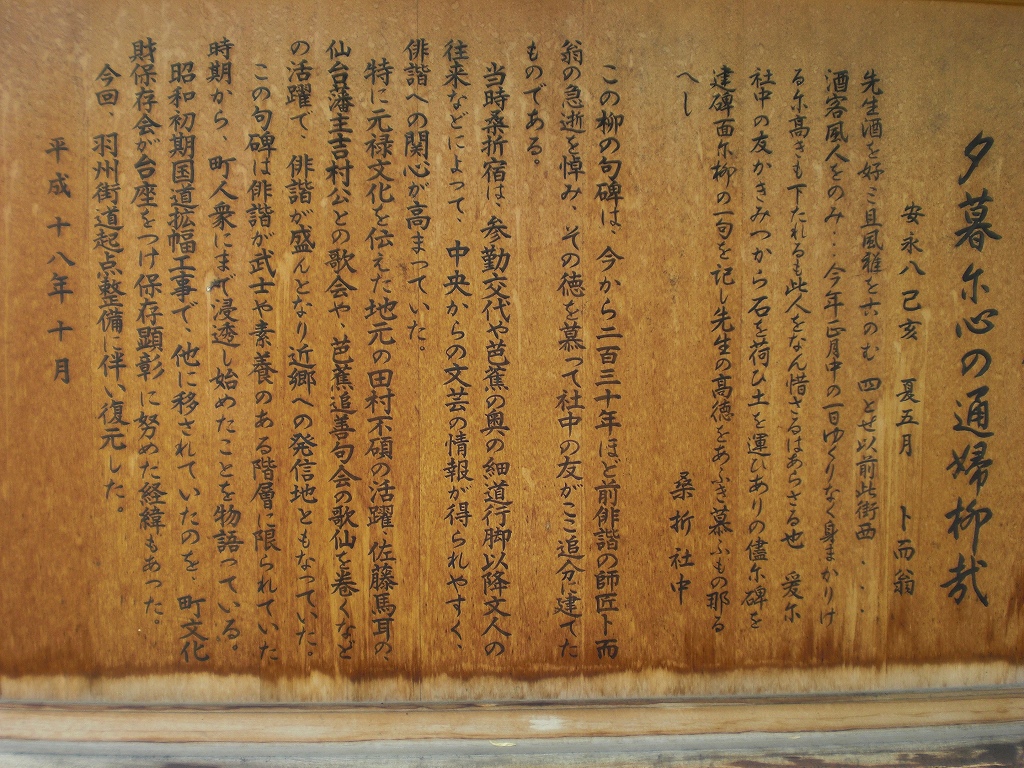 夕暮尓心の通婦柳哉
安永八己亥　夏五月　卜而翁
先生酒を好ミ且風雅を六のむ　四とせ以前此街西・・・
酒客風人をのみ・・・今年正月中の一日ゆくりなく身まかりけ
る尓高きも下たれるも此人をなん惜さるはあらさる也　爰尓
社中の友かきみつから石を荷ひ土を運ひありの儘尓碑を
建碑面尓柳の一句を記し先生の高徳をあふき慕ふもの那る
へし
桑折社中
この柳の句碑は、今から二百三十年ほど前俳諧の師匠卜而
翁の急逝を悼み、その徳を慕って社中の友がここ追分に建てた
ものである。
当時桑折宿は、参勤交代や芭蕉の奥の細道行脚以降文人の
往来などによって、中央からの文芸の情報が得られやすく、
俳諧への関心が高まっていた。
特に元禄文化を伝えた地元の田村不碩の活躍、佐藤馬耳の、
仙台藩主吉村公との歌会や、芭蕉追善句会の歌仙を巻くなど
の活躍で、俳諧が盛んとなり近郷への発信地ともなっていた。
この句碑は俳諧が武士や素養のある階層に限られていた
時期から、町人衆にまで浸透し始めたことを物語っている。
昭和初期国道拡幅工事で、他に移されていたのを、町文化
財保存会が台座をつけ保存顕彰に努めた経緯もあった。
今回、羽州街道起点整備に伴い復元した。
平成十八年十月